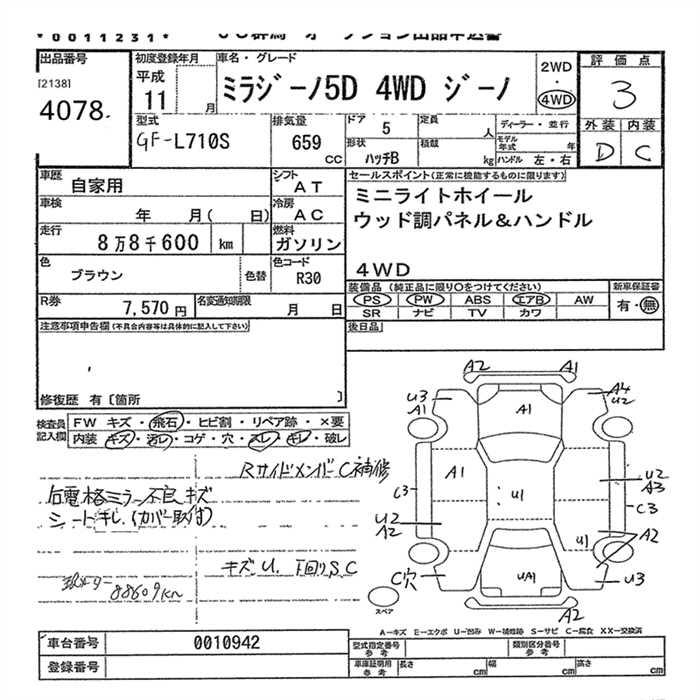 *0011231*
出品番号
[2138]
4078
初度登録年月
平成
11 月
車名・グレード
ミラジーノ5D 4WD ジーノ
2WD
・
4WD
評価点
3
外装 内装
D C
型式
GF-L710S
排気量
659
cc
ドア 5
定員 人
形状 ハッチB
積載 kg
ディーラー・並行
モデル年式 年
ハンドル 左・右
車歴 自家用
シフト AT
車検 年 月( 日)
冷房 AC
走行 8万8千600 km
燃料 ガソリン
色 ブラウン 色替
色コード R30
R券 7,570円
名変通知期限 月 日
セールスポイント(正常に機能するものに限ります)
ミニライトホイール
ウッド調パネル&ハンドル
4WD
装備品(純正品に限り○をつけてください)
PS PW ABS エアB AW
SR ナビ TV カワ
新車保証書
有・無
後日品
注意事項申告欄(不具合内容等は具体的に記入して下さい)
修復歴 有〔箇所 〕
検査員記入欄
FW キズ・飛石・ヒビ割・リペア跡・×要
内装 キズ・汚レ・コゲ・穴・スレ・キレ・破レ
RサイドメンバーC補修
右電格ミラー不良 キズ
シートキレ(カバー取付)
キズ U. 下回りS C
88609km
A2 A1
U3 A1
A4 U2
A1
A1
C3
U1
U2 A3
C3
U2 A2
A2
U1
C穴
UA1
U3
A2
スペア
A-キズ E-エクボ U-凹み W-補修跡 S-サビ C-腐食 XX-交換済
車台番号 0010942
登録番号
型式指定番号 参考
類別区分番号 参考
車庫証明用 参考
長さ cm
幅 cm
高さ cm